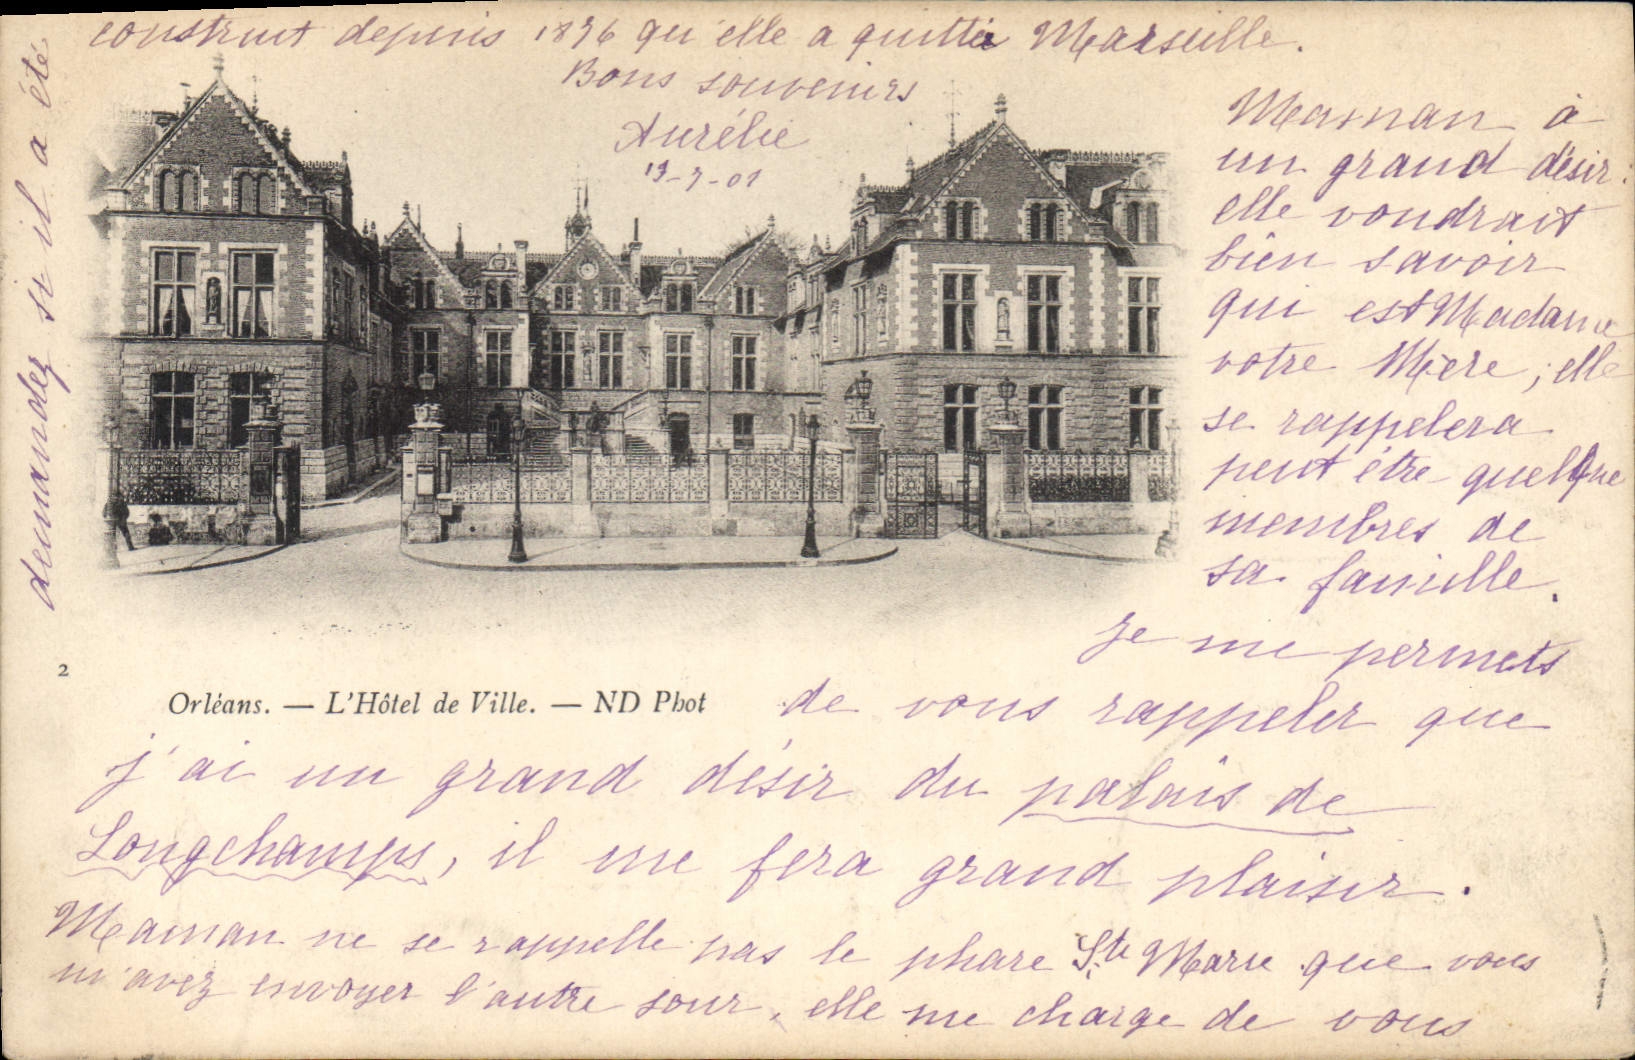 Maman à
un grand désir :
elle voudrait
bien savoir
qui est Madame
votre Mère ; elle
se rappelera
peut être quelque
membres de
sa famille.
Je me permets
de vous rappeler que
j'ai un grand désir du palais de
Longchamps, il me fera grand plaisir.
Maman ne se rappelle pas le phare Ste Marie que vous
m'avez envoyer l'autre jour, elle me charge de vous
demandez si il a été
construit depuis 1896 qu'elle a quittée Marseille.
Bons souvenirs
Aurélie
19-7-01
2
Orléans. — L'Hôtel de Ville. — ND Phot